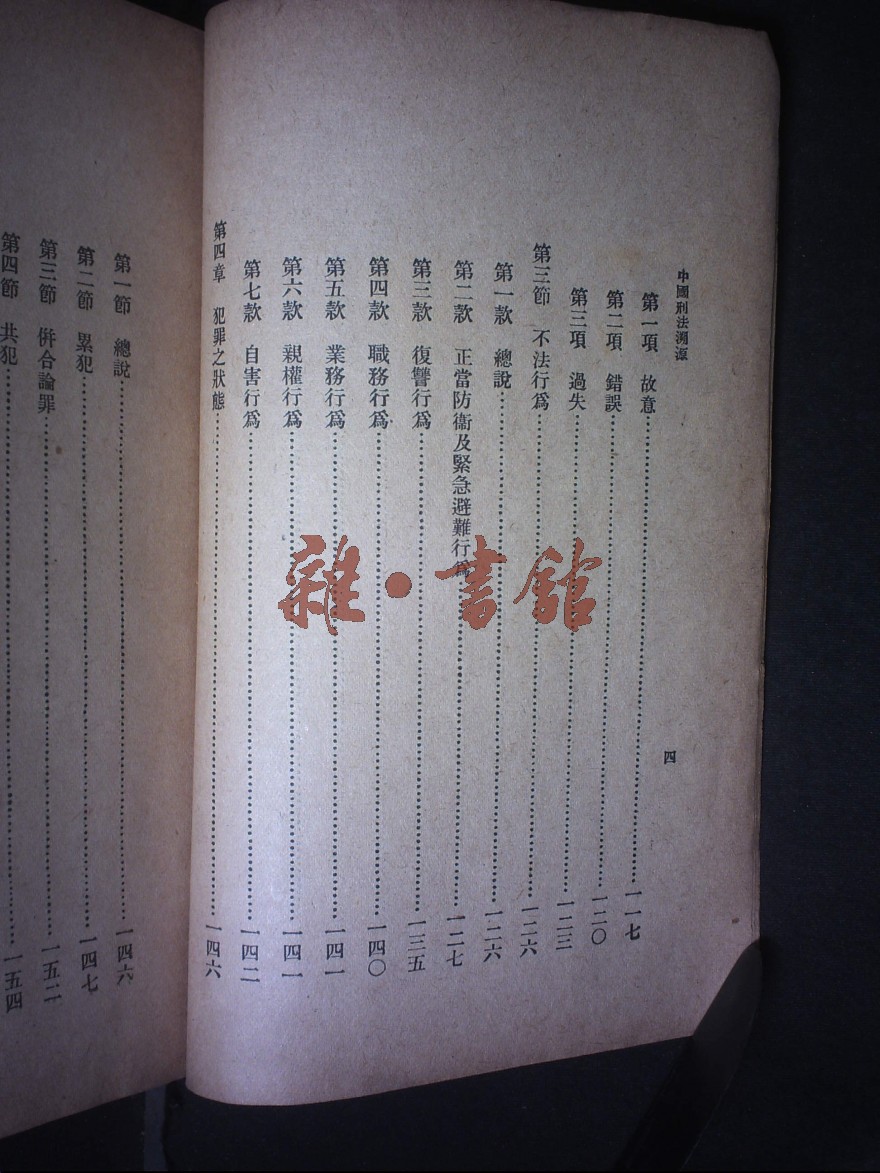 中國刑法溯源
四
第一項 故意……一一七
第二項 錯誤……一二〇
第三項 過失……一二三
第三節 不法行爲……一二六
第一款 總說……一二六
第二款 正當防衞及緊急避難行爲……一二七
第三款 復讐行爲……一三五
第四款 職務行爲……一四〇
第五款 業務行爲……一四一
第六款 親權行爲……一四一
第七款 自害行爲……一四二
第四章 犯罪之狀態……一四六
第一節 總說……一四六
第二節 累犯……一四七
第三節 倂合論罪……一五二
第四節 共犯……一五四
雜·書館